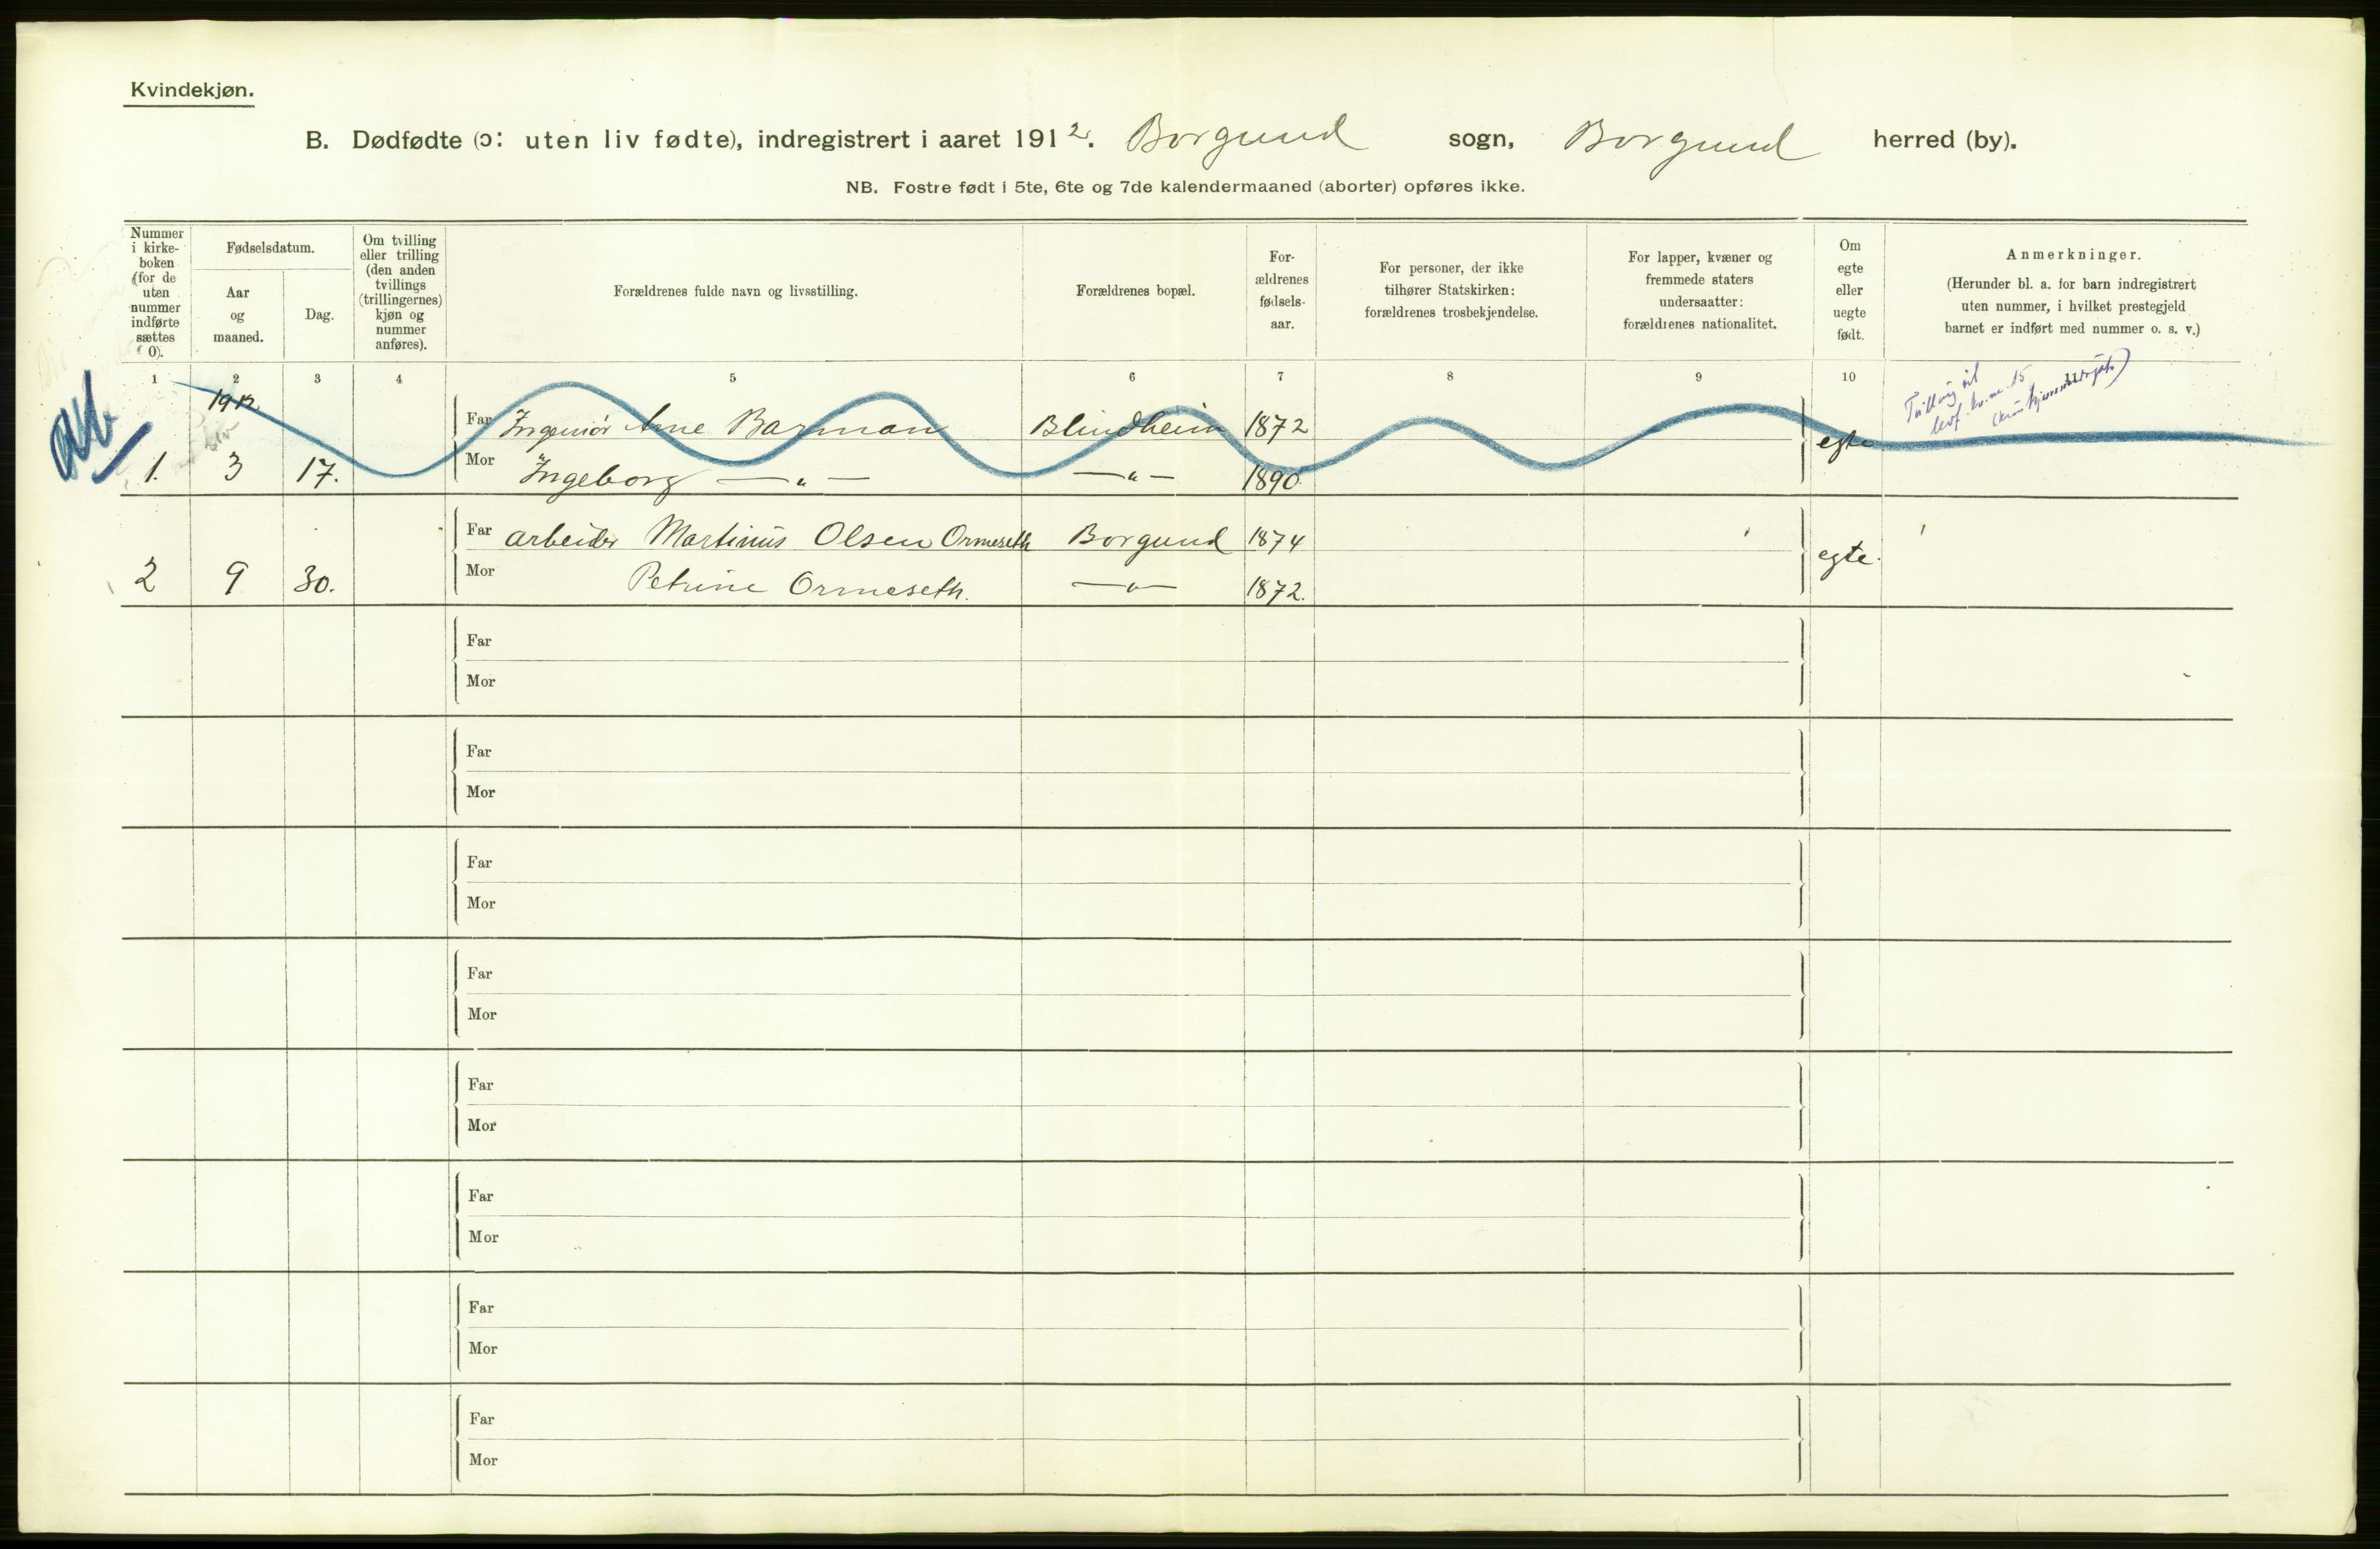 Kvindekjøn.
B. Dødfødte (ɔ: uten liv fødte), indregistrert i aaret 1912. Borgund sogn, Borgund herred (by).
NB. Fostre født i 5te, 6te og 7de kalendermaaned (aborter) opføres ikke.
Nummer
i kirke-
boken
(for de
uten
nummer
indførte
sættes
0).
Fødselsdatum.
Aar
og
maaned.
Dag.
Om tvilling
eller trilling
(den anden
tvillings
(trillingernes)
kjøn og
nummer
anføres).
Forældrenes fulde navn og livsstilling.
Forældrenes bopæl.
For-
ældrenes
fødsels-
aar.
For personer, der ikke
tilhører Statskirken:
forældrenes trosbekjendelse.
For lapper, kvæner og
fremmede staters
undersaatter:
forældrenes nationalitet.
Om
egte
eller
uegte
født.
Anmerkninger.
(Herunder bl. a. for barn indregistrert
uten nummer, i hvilket prestegjeld
barnet er indført med nummer o. s. v.)
1 2 3 4 5 6 7 8 9 10 11
Tvilling til
levf. kv. nr. 15
ab.
1912
Far Ingeniør Arne Barman Blindheim 1872
egte
1. 3 17. Mor Ingeborg —„— —„— 1890
Far arbeider Martinus Olsen Ormeseth Borgund 1874
egte.
2 9 30. Mor Petrine Ormeseth. —„— 1872.
Far
Mor
Far
Mor
Far
Mor
Far
Mor
Far
Mor
Far
Mor
Far
Mor
Far
Mor